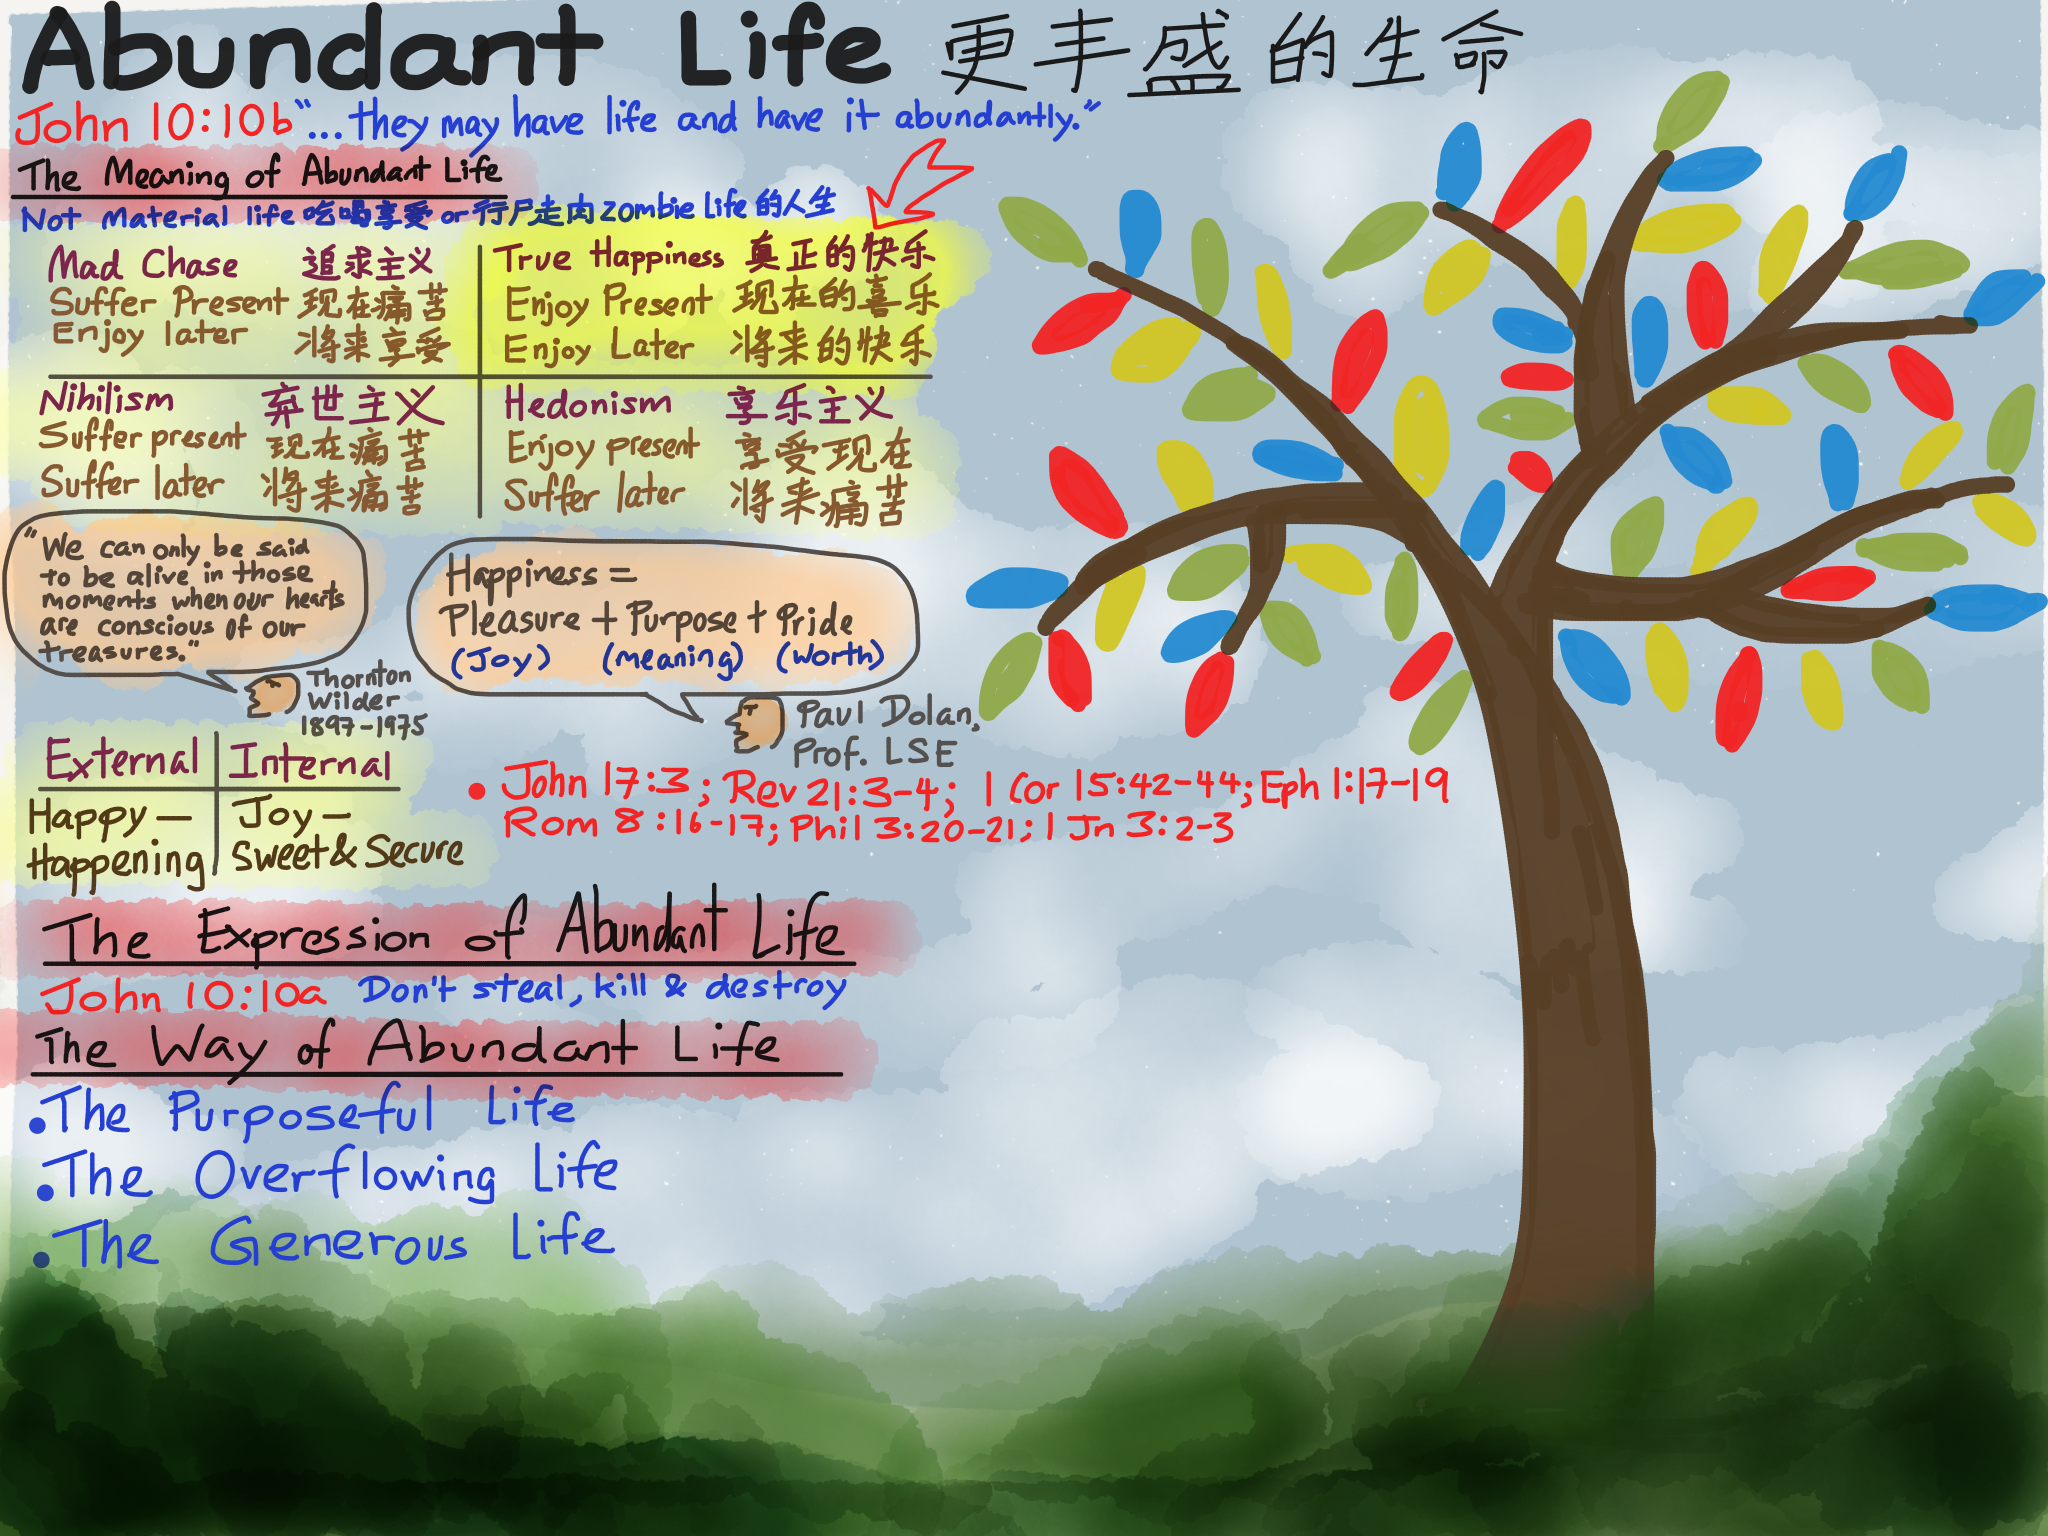 Abundant Life 更丰盛的生命
John 10:10b "...they may have life and have it abundantly."
The Meaning of Abundant Life
Not material life 吃喝享受 or 行尸走肉 zombie life 的人生
Mad Chase 追求主义
Suffer Present 现在痛苦
Enjoy later 将来享受
True Happiness 真正的快乐
Enjoy Present 现在的喜乐
Enjoy Later 将来的快乐
Nihilism 弃世主义
Suffer present 现在痛苦
Suffer later 将来痛苦
Hedonism 享乐主义
Enjoy present 享受现在
Suffer later 将来痛苦
"We can only be said
to be alive in those
moments when our hearts
are conscious of our
treasures."
Thornton
Wilder
1897-1975
Happiness =
Pleasure + Purpose + Pride
(Joy) (meaning) (worth)
Paul Dolan,
Prof. LSE
External
Happy —
Happening
Internal
Joy —
Sweet & Secure
• John 17:3; Rev 21:3-4; 1 Cor 15:42-44; Eph 1:17-19
Rom 8:16-17; Phil 3:20-21; 1 Jn 3:2-3
The Expression of Abundant Life
John 10:10a Don't steal, kill & destroy
The Way of Abundant Life
• The Purposeful Life
• The Overflowing Life
• The Generous Life